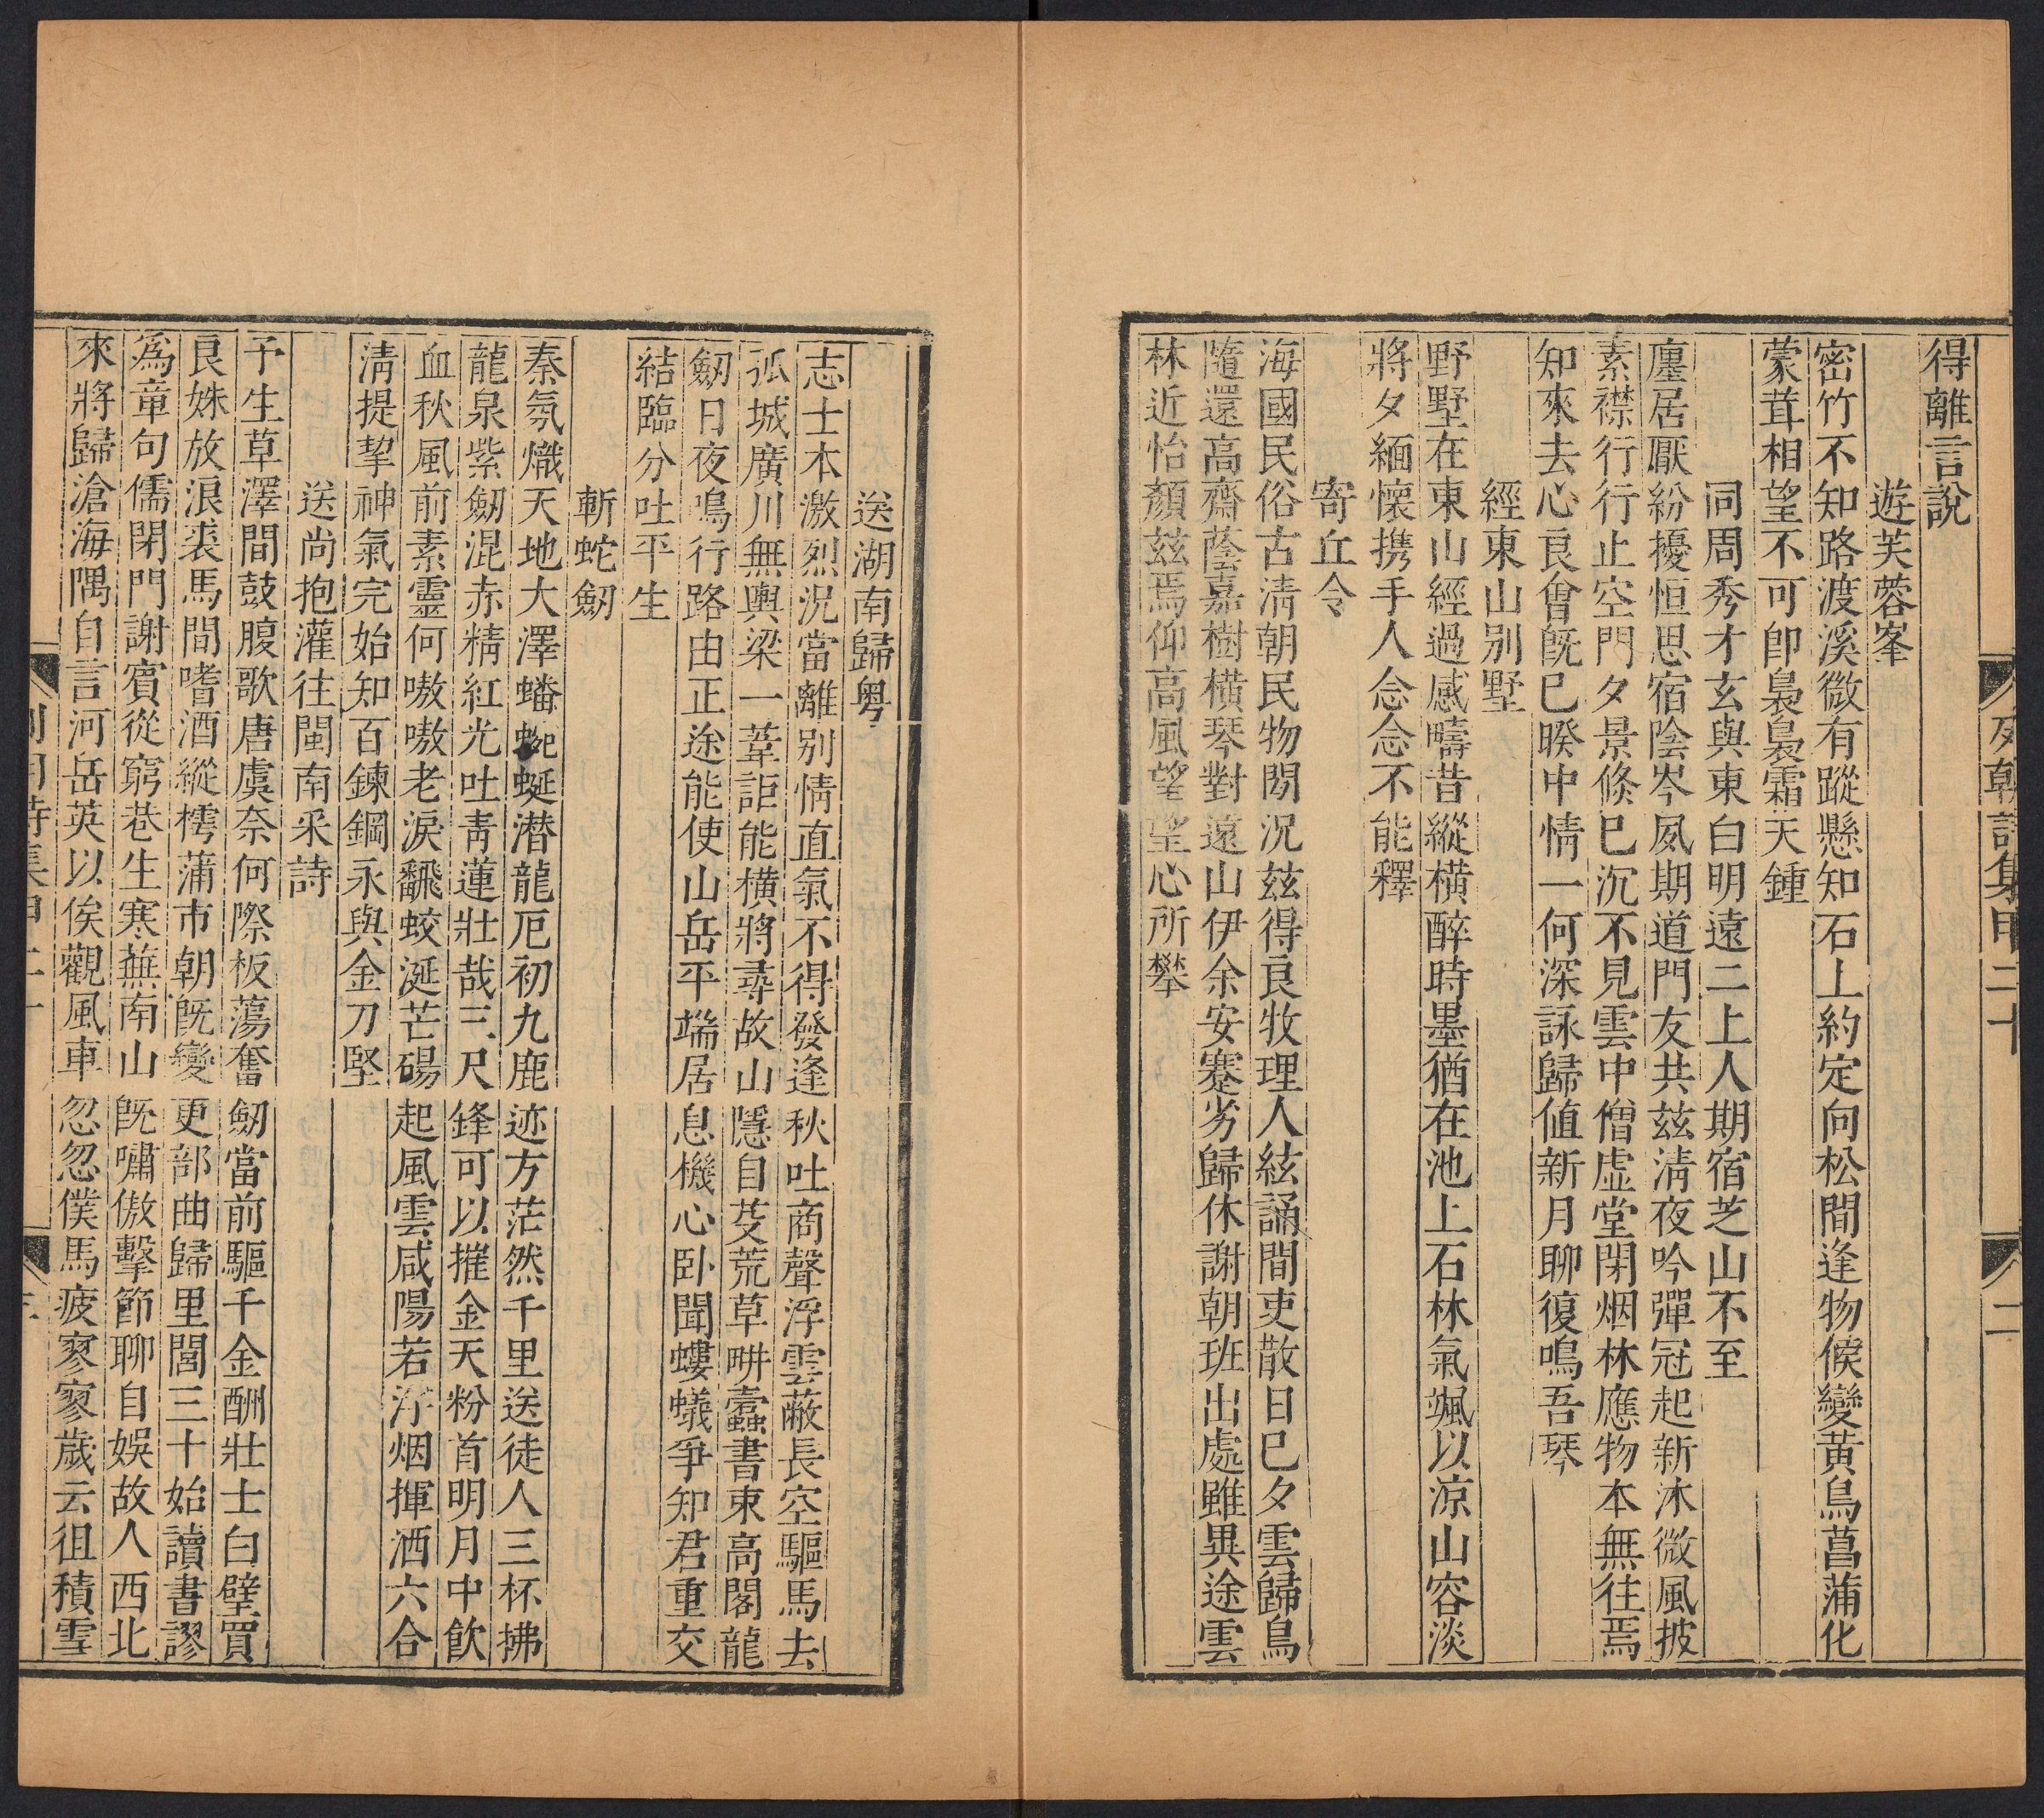 列朝詩集甲二十
二
得離言說
遊芙蓉峯
密竹不知路渡溪微有蹤懸知石上約定向松間逢物候變黃鳥菖蒲化
蒙茸相望不可卽裊裊霜天鍾
同周秀才玄與東白明遠二上人期宿芝山不至
廛居厭紛擾恒思宿陰岑夙期道門友共茲淸夜吟彈冠起新沐微風披
素襟行行止空門夕景倐已沉不見雲中僧虛堂閉烟林應物本無往焉
知來去心良會旣已暌中情一何深詠歸値新月聊復鳴吾琴
經東山別墅
野墅在東山經過感疇昔縱橫醉時墨猶在池上石林氣颯以涼山容淡
將夕緬懷携手人念念不能釋
寄丘令
海國民俗古淸朝民物閎況茲得良牧理人絃誦間吏散日已夕雲歸鳥
隨還高齋蔭嘉樹橫琴對遠山伊余安蹇劣歸休謝朝班出處雖異途雲
林近怡顏茲焉仰高風望望心所攀
送湖南歸粵
志士本激烈況當離別情直氣不得發逢秋吐商聲浮雲蔽長空驅馬去
孤城廣川無輿梁一葦詎能橫將尋故山隱自芟荒草畊蠹書束高閣龍
劒日夜鳴行路由正途能使山岳平端居息機心卧聞螻蟻爭知君重交
結臨分吐平生
斬蛇劒
秦氛熾天地大澤蟠蜿蜒潜龍厄初九鹿迹方茫然千里送徒人三杯拂
龍泉紫劒混赤精紅光吐靑蓮壯哉三尺鋒可以摧金天粉首明月中飮
血秋風前素靈何嗷嗷老淚飜蛟涎芒碭起風雲咸陽若浮烟揮洒六合
淸提挈神氣完始知百鍊鋼永與金刀堅
送尚抱灌往閩南采詩
予生草澤間鼓腹歌唐虞奈何際板蕩奮劒當前驅千金酬壯士白璧買
良姝放浪裘馬間嗜酒縱樗蒲市朝旣變更部曲歸里閭三十始讀書謬
爲章句儒閉門謝賓從窮巷生寒蕪南山旣嘯傲擊節聊自娛故人西北
來將歸滄海隅自言河岳英以俟觀風車忽忽僕馬疲寥寥歲云徂積雪